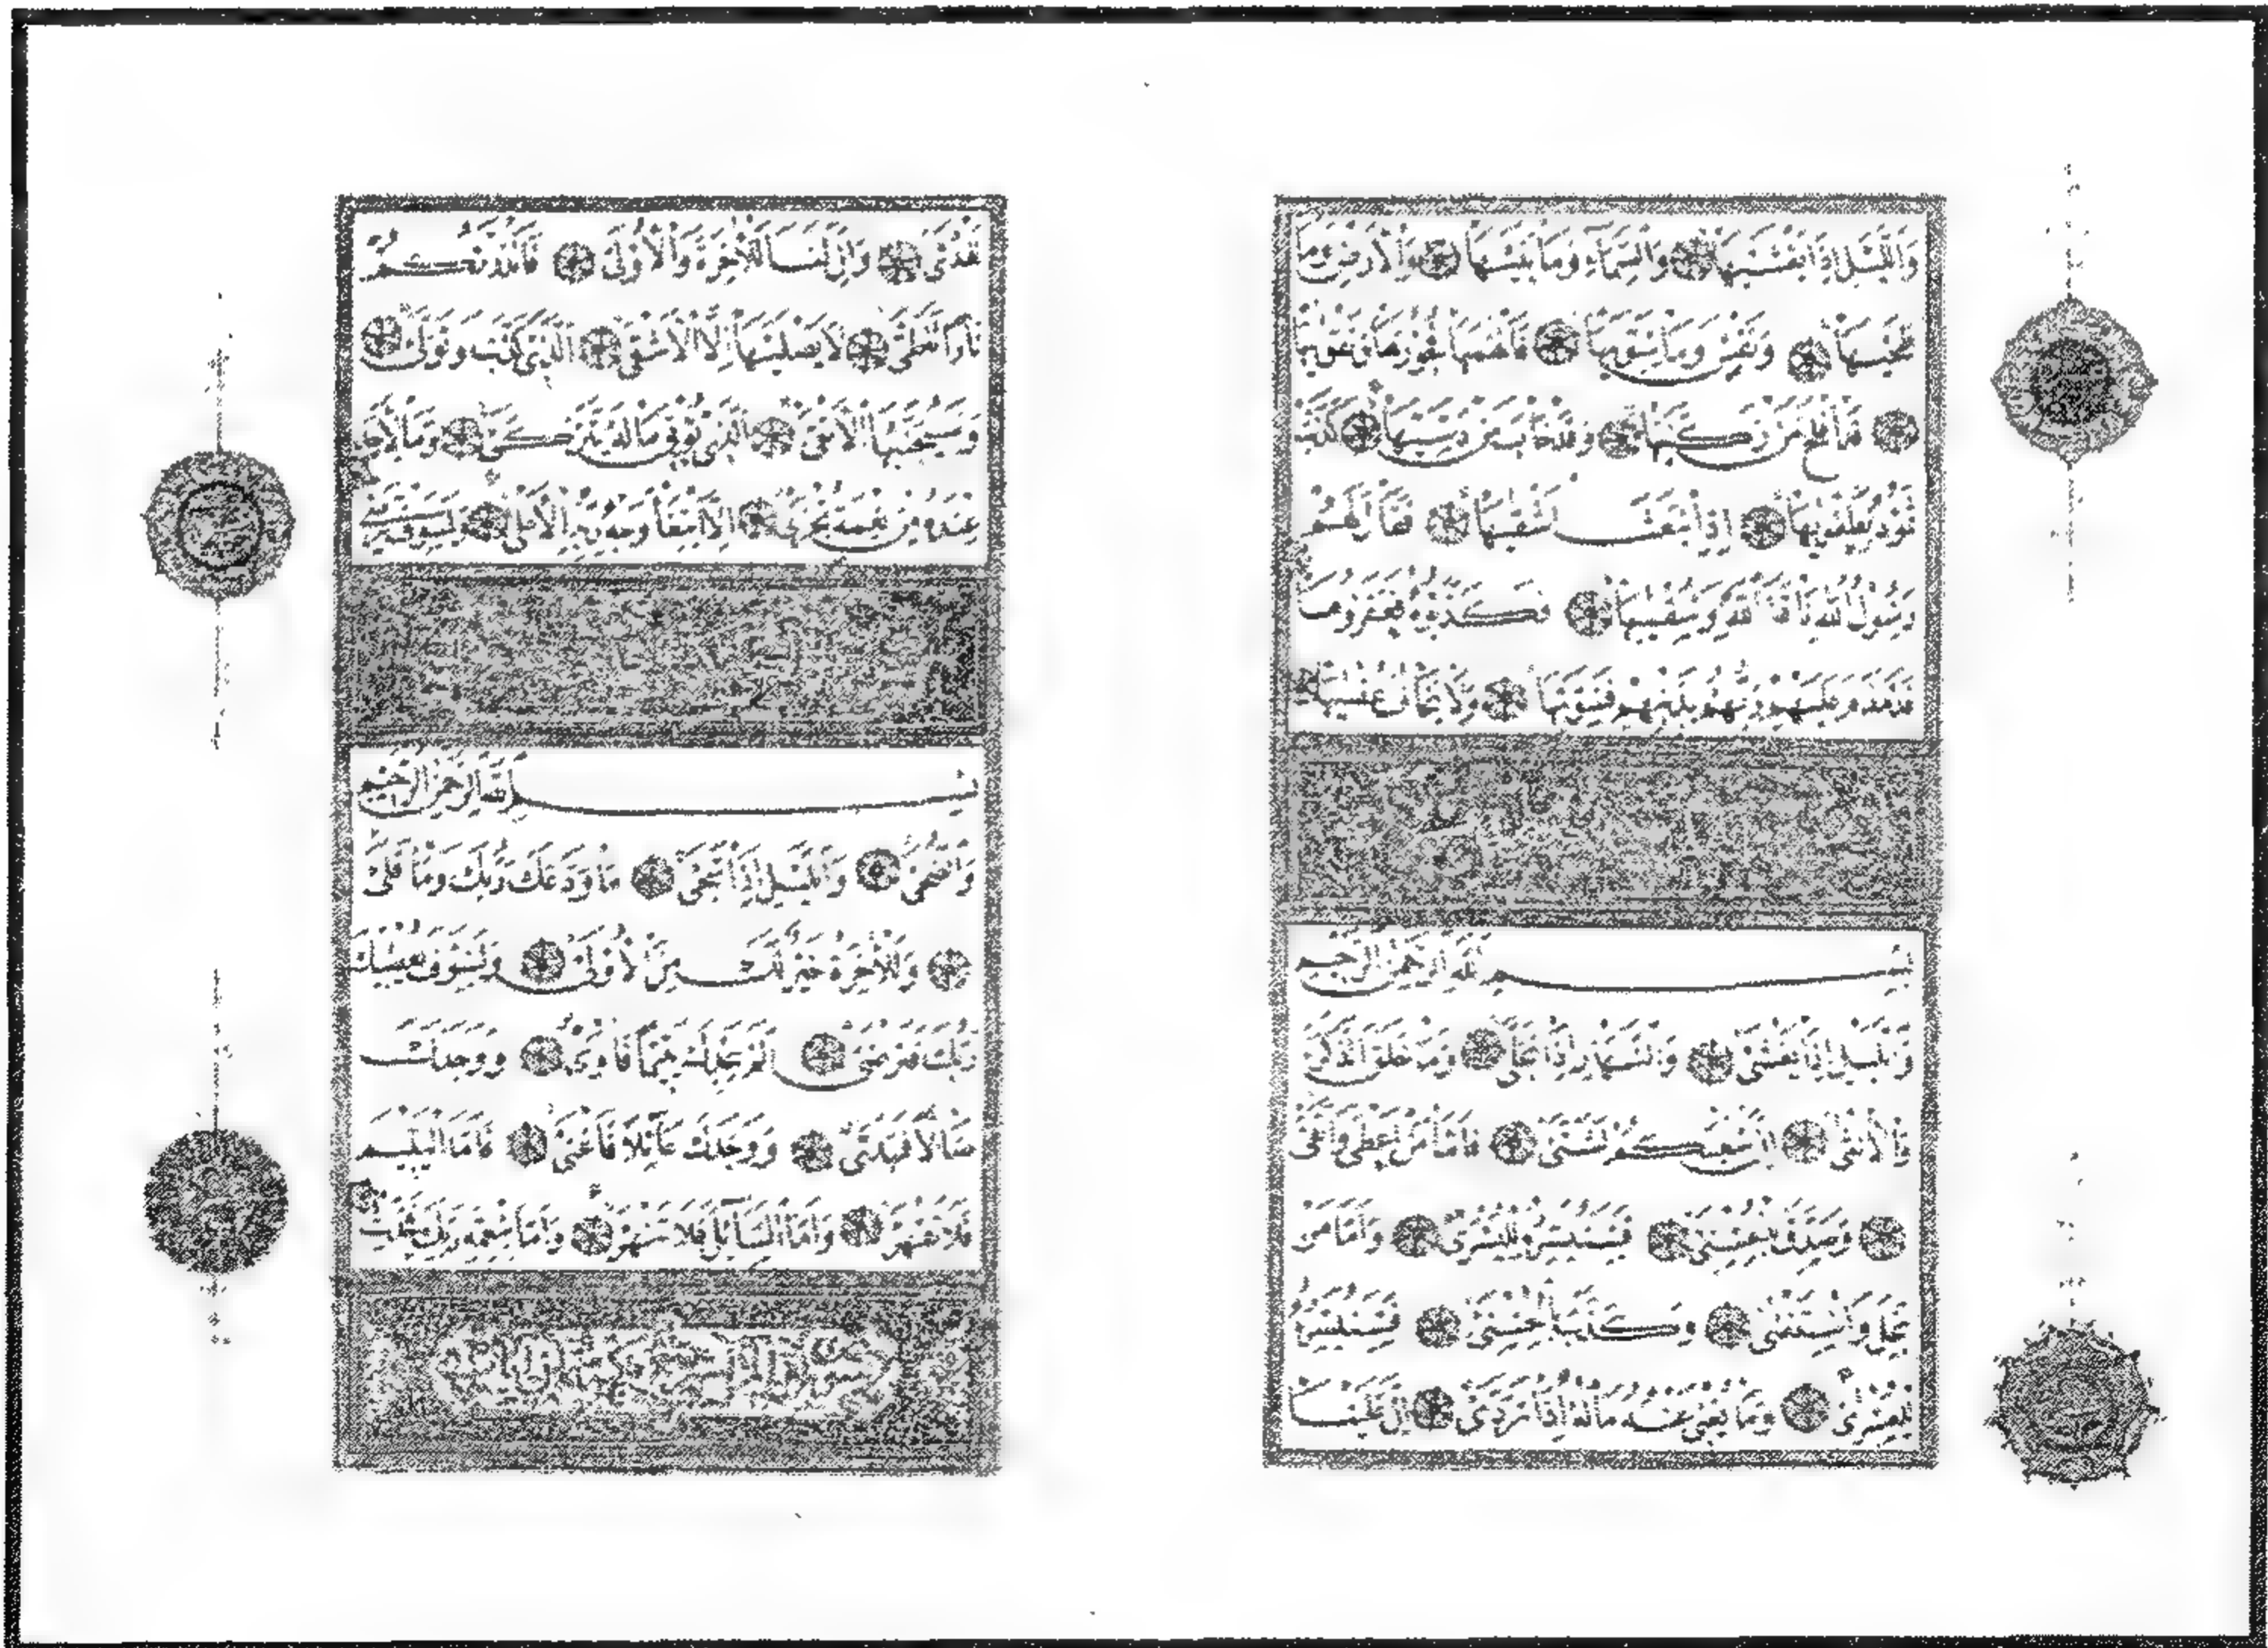 وَاللَّيْلِ إِذَا يَغْشَيٰهَا وَالسَّمَاءِ وَمَا بَنَيٰهَا وَالْأَرْضِ وَمَا
طَحَيٰهَا وَنَفْسٍ وَمَا سَوَّيٰهَا فَأَلْهَمَهَا فُجُورَهَا وَتَقْوَيٰهَا
قَدْ أَفْلَحَ مَنْ زَكَّيٰهَا وَقَدْ خَابَ مَنْ دَسَّيٰهَا كَذَّبَتْ
ثَمُودُ بِطَغْوَيٰهَا إِذِ انْبَعَثَ أَشْقَيٰهَا فَقَالَ لَهُمْ
رَسُولُ اللَّهِ نَاقَةَ اللَّهِ وَسُقْيَيٰهَا فَكَذَّبُوهُ فَعَقَرُوهَا
فَدَمْدَمَ عَلَيْهِمْ رَبُّهُمْ بِذَنْبِهِمْ فَسَوَّيٰهَا وَلَا يَخَافُ عُقْبَيٰهَا
بِسْمِ اللَّهِ الرَّحْمَنِ الرَّحِيمِ
وَاللَّيْلِ إِذَا يَغْشَى وَالنَّهَارِ إِذَا تَجَلَّى وَمَا خَلَقَ الذَّكَرَ
وَالْأُنْثَى إِنَّ سَعْيَكُمْ لَشَتَّى فَأَمَّا مَنْ أَعْطَى وَاتَّقَى
وَصَدَّقَ بِالْحُسْنَى فَسَنُيَسِّرُهُ لِلْيُسْرَى وَأَمَّا مَنْ
بَخِلَ وَاسْتَغْنَى وَكَذَّبَ بِالْحُسْنَى فَسَنُيَسِّرُهُ
لِلْعُسْرَى وَمَا يُغْنِي عَنْهُ مَالُهُ إِذَا تَرَدَّى إِنَّ عَلَيْنَا
لَلْهُدَى وَإِنَّ لَنَا لَلْآخِرَةَ وَالْأُولَى فَأَنْذَرْتُكُمْ
نَارًا تَلَظَّى لَا يَصْلَيٰهَا إِلَّا الْأَشْقَى الَّذِي كَذَّبَ وَتَوَلَّى
وَسَيُجَنَّبُهَا الْأَتْقَى الَّذِي يُؤْتِي مَالَهُ يَتَزَكَّى وَمَا لِأَحَدٍ
عِنْدَهُ مِنْ نِعْمَةٍ تُجْزَى إِلَّا ابْتِغَاءَ وَجْهِ رَبِّهِ الْأَعْلَى وَلَسَوْفَ يَرْضَى
بِسْمِ اللَّهِ الرَّحْمَنِ الرَّحِيمِ
وَالضُّحَى وَاللَّيْلِ إِذَا سَجَى مَا وَدَّعَكَ رَبُّكَ وَمَا قَلَى
وَلَلْآخِرَةُ خَيْرٌ لَكَ مِنَ الْأُولَى وَلَسَوْفَ يُعْطِيكَ
رَبُّكَ فَتَرْضَى أَلَمْ يَجِدْكَ يَتِيمًا فَآوَى وَوَجَدَكَ
ضَالًّا فَهَدَى وَوَجَدَكَ عَائِلًا فَأَغْنَى فَأَمَّا الْيَتِيمَ
فَلَا تَقْهَرْ وَأَمَّا السَّائِلَ فَلَا تَنْهَرْ وَأَمَّا بِنِعْمَةِ رَبِّكَ فَحَدِّثْ